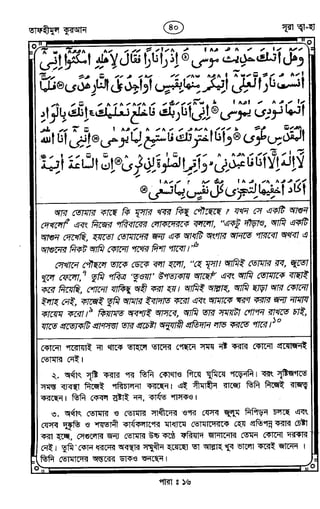 তাফহীমুল কুরআন
৪০
সূরা ত্বা-হা
وَهَلْ أَتٰىكَ حَدِيْثُ مُوْسٰى ۞ اِذْ رَاٰ نَارًا فَقَالَ لِاَهْلِهِ امْكُثُوْٓا اِنِّيْٓ
اٰنَسْتُ نَارًا لَّعَلِّيْٓ اٰتِيْكُمْ مِّنْهَا بِقَبَسٍ اَوْ اَجِدُ عَلَى النَّارِ هُدًى ۞ فَلَمَّآ
اَتٰىهَا نُوْدِيَ يٰمُوْسٰى ۞ اِنِّيْٓ اَنَا رَبُّكَ فَاخْلَعْ نَعْلَيْكَ ۚ اِنَّكَ بِالْوَادِ
الْمُقَدَّسِ طُوًى ۞ وَاَنَا اخْتَرْتُكَ فَاسْتَمِعْ لِمَا يُوْحٰى ۞ اِنَّنِيْٓ اَنَا اللّٰهُ
لَآ اِلٰهَ اِلَّآ اَنَا فَاعْبُدْنِيْ ۙ وَاَقِمِ الصَّلٰوةَ لِذِكْرِيْ ۞ اِنَّ السَّاعَةَ اٰتِيَةٌ
اَكَادُ اُخْفِيْهَا لِتُجْزٰى كُلُّ نَفْسٍۢ بِمَا تَسْعٰى ۞
আর তোমার কাছে কি মূসার খবর কিছু পৌঁছেছে ? যখন সে একটি আগুন
দেখলো এবং নিজের পরিবারের লোকদেরকে বললো, “একটু দাঁড়াও, আমি একটি
আগুন দেখেছি, হয়তো তোমাদের জন্য এক আধটি অংগার আনতে পারবো অথবা এ
আগুনের নিকট আমি কোনো পথের দিশা পাবো।”
সেখানে পৌঁছলে তাকে ডেকে বলা হলো, “হে মূসা! আমিই তোমার রব, জুতো
খুলে ফেলো, তুমি পবিত্র ‘তুওয়া’ উপত্যকায় আছো এবং আমি তোমাকে বাছাই
করে নিয়েছি, শোনো যাকিছু অহী করা হয়। আমিই আল্লাহ, আমি ছাড়া আর কোনো
ইলাহ নেই, কাজেই তুমি আমার ইবাদাত করো এবং আমাকে স্মরণ করার জন্য নামায
কায়েম করো। কিয়ামত অবশ্যই আসবে, আমি তার সময়টা গোপন রাখতে চাই,
যাতে প্রত্যেকটি প্রাণসত্তা তার প্রচেষ্টা অনুযায়ী প্রতিদান লাভ করতে পারে।১০
কোনো পরোয়াই না থাকে তাহলে তাদের পেছনে সময় নষ্ট করার কোনো প্রয়োজনই
তোমার নেই।
২. অর্থাৎ সৃষ্টি করার পর তিনি কোথাও গিয়ে ঘুমিয়ে পড়েননি। বরং সৃষ্টিজগতে
সমস্ত ব্যবস্থা নিজেই পরিচালনা করছেন। এই সীমাহীন রাজ্যে তিনি নিজেই রাজত্ব
করছেন। তিনি কেবল স্রষ্টাই নন, কার্যত শাসকও।
৩. অর্থাৎ তোমার ও তোমার সাথীদের ওপর যেসব জুলুম নিপীড়ন চলছে এবং
যেসব দুষ্কৃতি ও শয়তানী কার্যকলাপের মাধ্যমে তোমাদেরকে হেয় প্রতিপন্ন করার চেষ্টা
করা হচ্ছে, সেগুলোর জন্য তোমার উচ্চ কণ্ঠে ফরিয়াদ জানানোর তেমন কোনো দরকার
নেই। তুমি কোন ধরনের অবস্থার সম্মুখীন হয়েছো তা আল্লাহ খুব ভালো করেই জানেন।
তিনি তোমাদের অন্তরের ডাকও শুনছেন।
পারা : ১৬